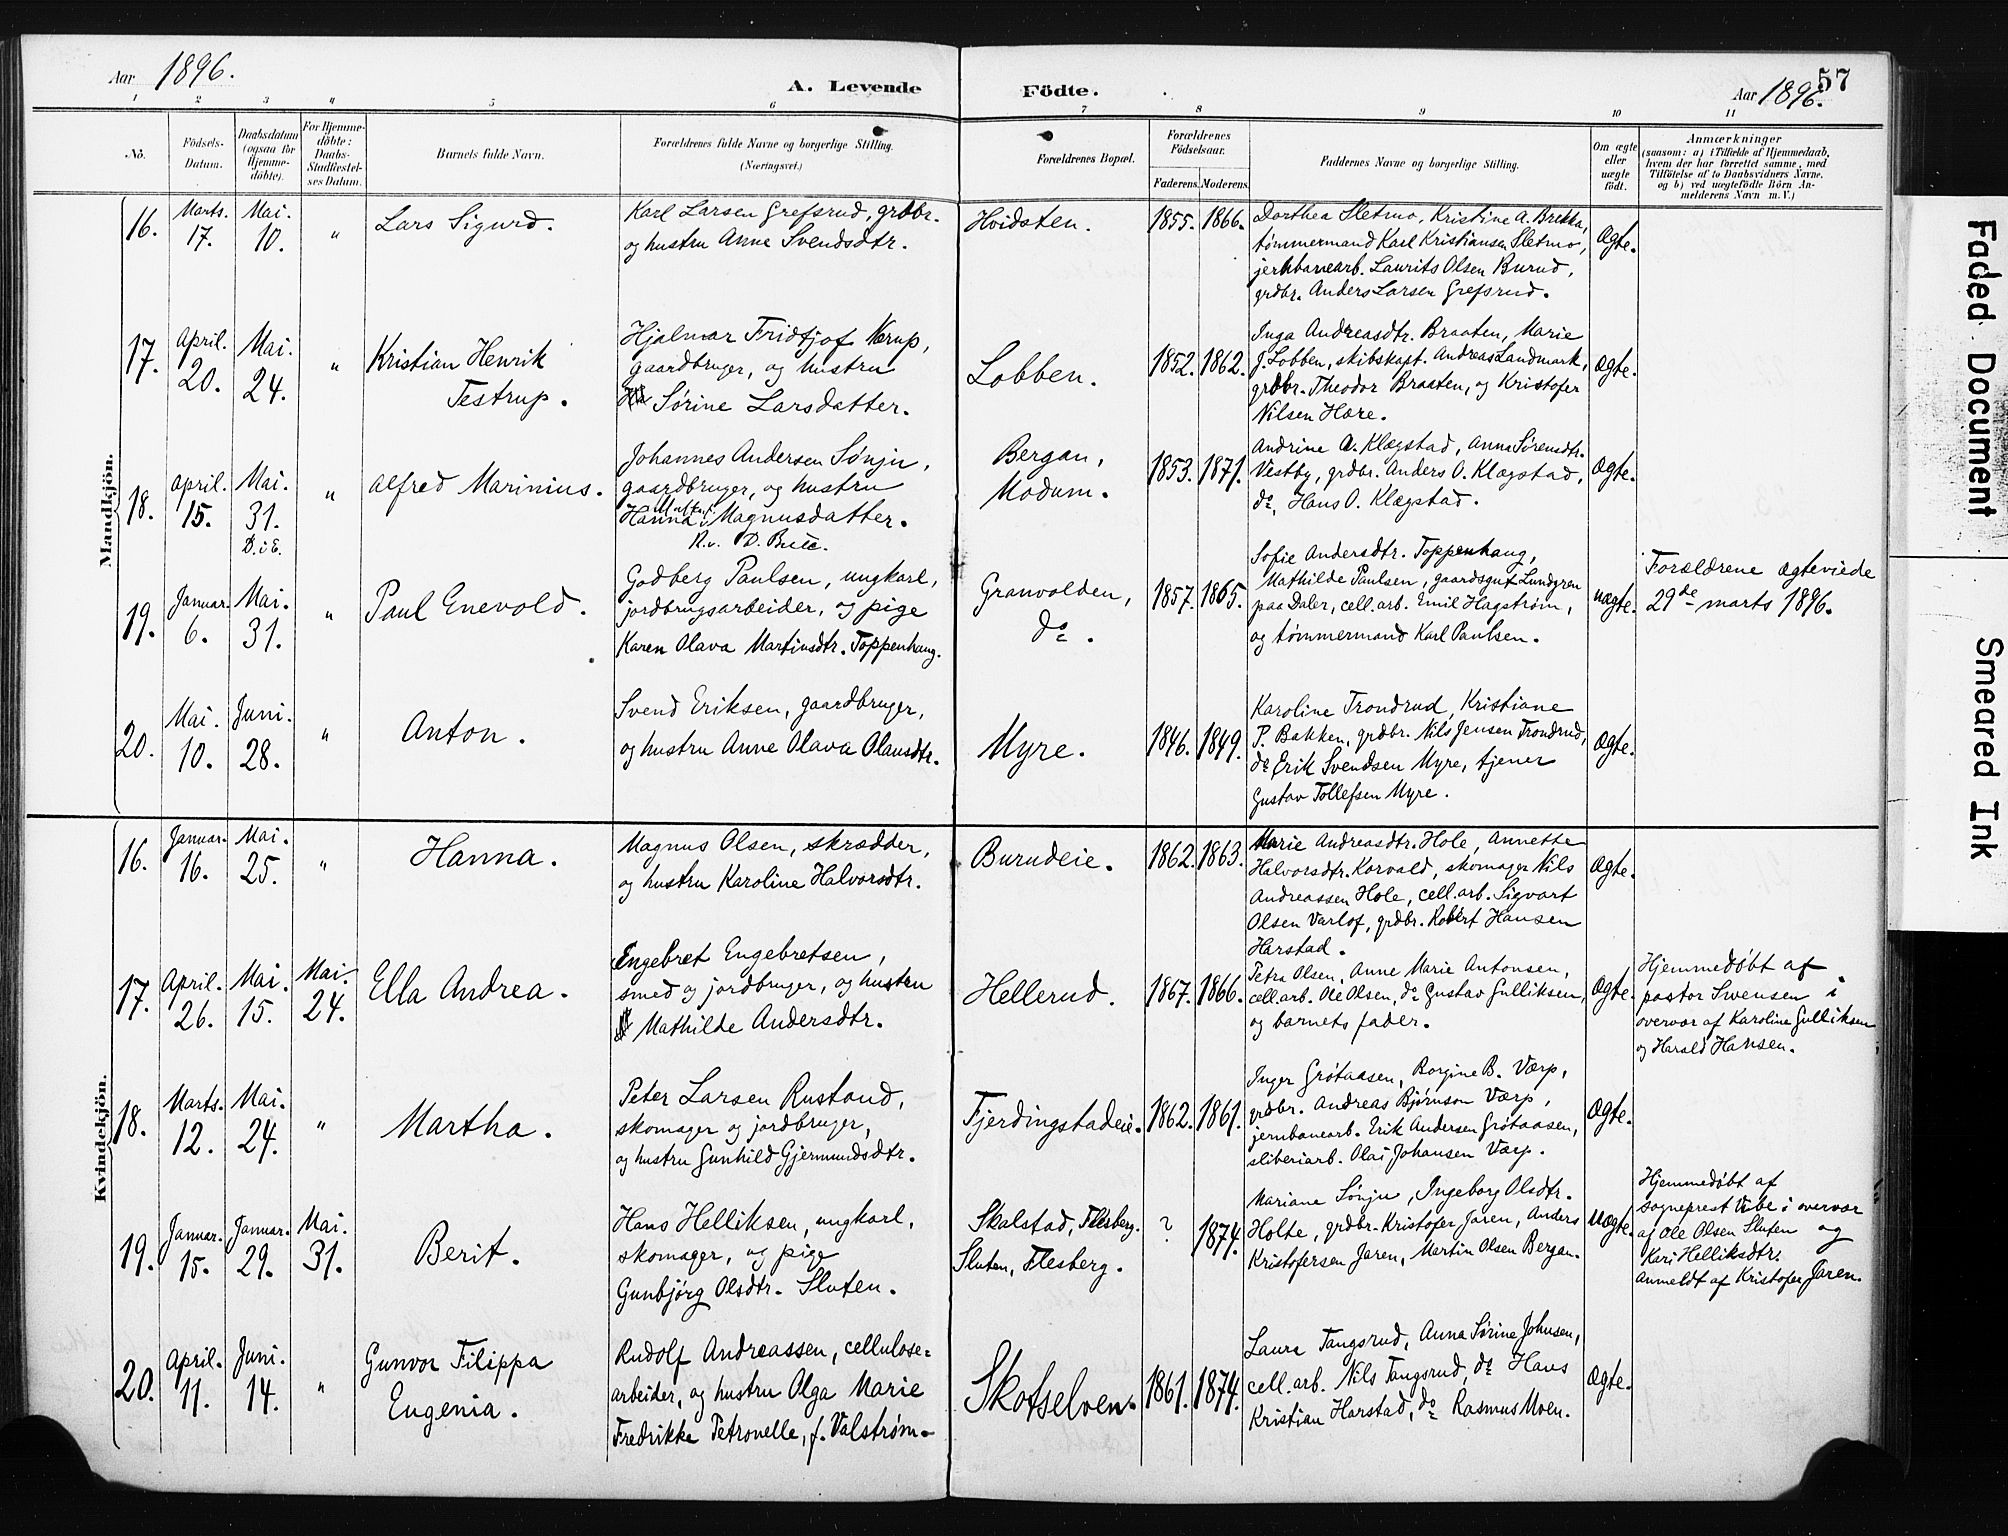 Aar 1896.
A. Levende
Födte.
Aar 1896.
57
1 2 3 4 5 6 7 8 9 10 11
No.
Födsels-
Datum.
Daabsdatum
(ogsaa for
Hjemme-
döbte).
For Hjemme-
döbte:
Daabs-
Stadfæstel-
ses Datum.
Barnets fulde Navn.
Forældrenes fulde Navne og borgerlige Stilling.
(Næringsvei.)
Forældrenes Bopæl.
Forældrenes
Födselsaar.
Faderens. Moderens.
Faddernes Navne og borgerlige Stilling.
Om ægte
eller
uægte
födt.
Anmærkninger
(saasom: a) i Tilfælde af Hjemmedaab,
hvem der har forrettet samme, med
Tilföielse af to Daabsvidners Navne.
og b) ved uægtefödte Börn An-
melderens Navn m. V.)
Mandkjön.
16.
Marts.
17.
Mai.
10.
"
Lars Sigurd.
Karl Larsen Grefsrud, grdbr.
og hustru Anne Svendsdtr.
Hvidsten.
1855. 1866.
Dorthea Sletmo, Kristine A. Brekka,
tømmermand Karl Kristiansen Sletmo,
jernbanearb. Laurits Olsen Burud,
grdbr. Anders Larsen Grefsrud.
Ægte.
17.
April.
20.
Mai.
24.
"
Kristian Henrik
Testrup.
Hjalmar Fridtjof Nerup,
gaardbruger, og hustru
Sørine Larsdatter.
Lobben.
1852. 1862.
Inga Andreasdtr. Braaten, Marie
J. Lobben, skibskapt. Andreas Landmark,
grdbr. Theodor Braaten, og Kristofer
Nilsen Hære.
Ægte.
18.
April.
15.
Mai.
31.
D. i E.
"
Alfred Marinius.
Johannes Andersen Sønju,
gaardbruger, og hustru
Hanna Magnusdatter.
Bergan,
Modum.
1853. 1871.
Andrine A. Klægstad, Anna Sørensdtr.
Vestby, grdbr. Anders O. Klægstad,
do, Hans O. Klægstad.
Ægte.
19.
Januar.
6.
Mai.
31.
"
Paul Enevold.
Godberg Paulsen, ungkarl,
jordbrugsarbeider, og pige
Karen Olava Martinsdtr. Toppenhaug.
Granvolden,
do.
1857. 1865.
Sofie Andersdtr. Toppenhaug,
Mathilde Paulsen, gaardsgut Lundgren
paa Daler, cell. arb. Emil Hagstrøm,
og tømmermand Karl Paulsen.
uægte.
Forældrene ægteviede
29de marts 1896.
20.
Mai.
10.
Juni.
28.
"
Anton.
Svend Eriksen, gaardbruger,
og hustru Anne Olava Olausdtr.
Myre.
1846. 1849.
Karoline Trondrud, Kristiane
P. Bakken, grdbr. Nils Jensen Trondrud,
do Erik Svendsen Myre, tjener
Gustav Tollefsen Myre.
Ægte.
Kvindekjön.
16.
Januar.
16.
Mai.
25.
"
Hanna.
Magnus Olsen, skrædder,
og hustru Karoline Halvorsdtr.
Burudeie.
1862. 1863.
Marie Andreasdtr. Hole, Annette
Halvorsdtr. Korvald, skomager Nils
Andreassen Hole, cell. arb. Sigvart
Olsen Varlof, grdbr. Robert Hansen
Harstad.
Ægte.
17.
April.
26.
Mai.
15.
Mai.
24.
Ella Andrea.
Engebret Engebretsen,
smed og jordbruger, og hustru
Mathilde Andersdtr.
Hellerud.
1867. 1866.
Petra Olsen, Anne Marie Antonsen,
cell. arb. Ole Olsen, do Gustav Gulliksen,
og barnets fader.
Ægte.
Hjemmedøbt af
pastor Svensen i
overvær af Karoline Gulliksen
og Harald Hansen.
18.
Marts.
12.
Mai.
24.
"
Martha.
Peter Larsen Rustand,
skomager og jordbruger,
og hustru Gunhild Gjermundsdtr.
Fjerdingstadeie.
1862. 1861.
Inger Grøtaasen, Borgine B. Værp,
grdbr. Andreas Bjørnson Værp,
jernbanearb. Erik Andersen Grøtaasen,
sliberiarb. Olai Johansen Værp.
Ægte.
19.
Januar.
15.
Januar.
29.
Mai.
31.
Berit.
Hans Helliksen, ungkarl,
skomager, og pige
Gunbjørg Olsdtr. Sluten.
Skalstad, Flesberg.
Sluten, Flesberg.
? 1874.
Mariane Sønju, Ingeborg Olsdtr.
Holte, grdbr. Kristofer Jaren, Anders
Kristofersen Jaren, Martin Olsen Bergan.
Uægte.
Hjemmedøbt af
sogneprest Vibe i overvær
af Ole Olsen Sluten og
Kari Helliksdtr.
Anmeldt af Kristofer Jaren.
20.
April.
11.
Juni.
14.
"
Gunvor Filippa
Eugenia.
Rudolf Andreassen, cellulose=
arbeider, og hustru Olga Marie
Fredrikke Petronelle, f. Valstrøm.
Skotselven.
1861. 1874.
Laura Tangsrud, Anna Sørine Johnsen,
cell. arb. Nils Tangsrud, do Hans
Kristian Harstad, do Rasmus Moen.
Ægte.
Faded Document
Smeared Ink